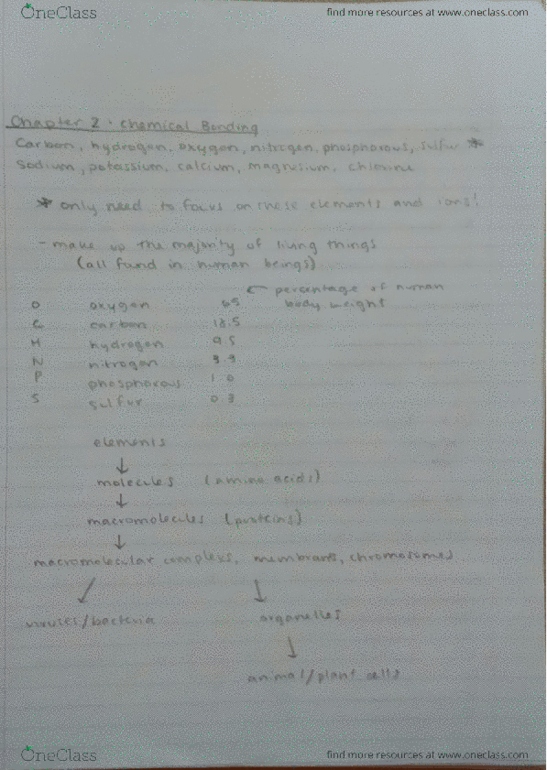 OneClass
find more resources at www.oneclass.com
Chapter 2 · Chemical Bonding
Carbon, hydrogen, oxygen, nitrogen, phosphorous, sulfur *
Sodium, potassium, calcium, magnesium, chlorine
* only need to focus on these elements and ions!
- make up the majority of living things
(all found in human beings)
← percentage of human
body weight
O oxygen 65
C carbon 18.5
H hydrogen 9.5
N nitrogen 3.3
P phosphorous 1.0
S sulfur 0.3
elements
↓
molecules (amino acids)
↓
macromolecules (proteins)
↓
macromolecular complexs, membrans, chromosomes
↙ ↓
viruses/bacteria organelles
↓
animal/plant cells
OneClass
find more resources at www.oneclass.com